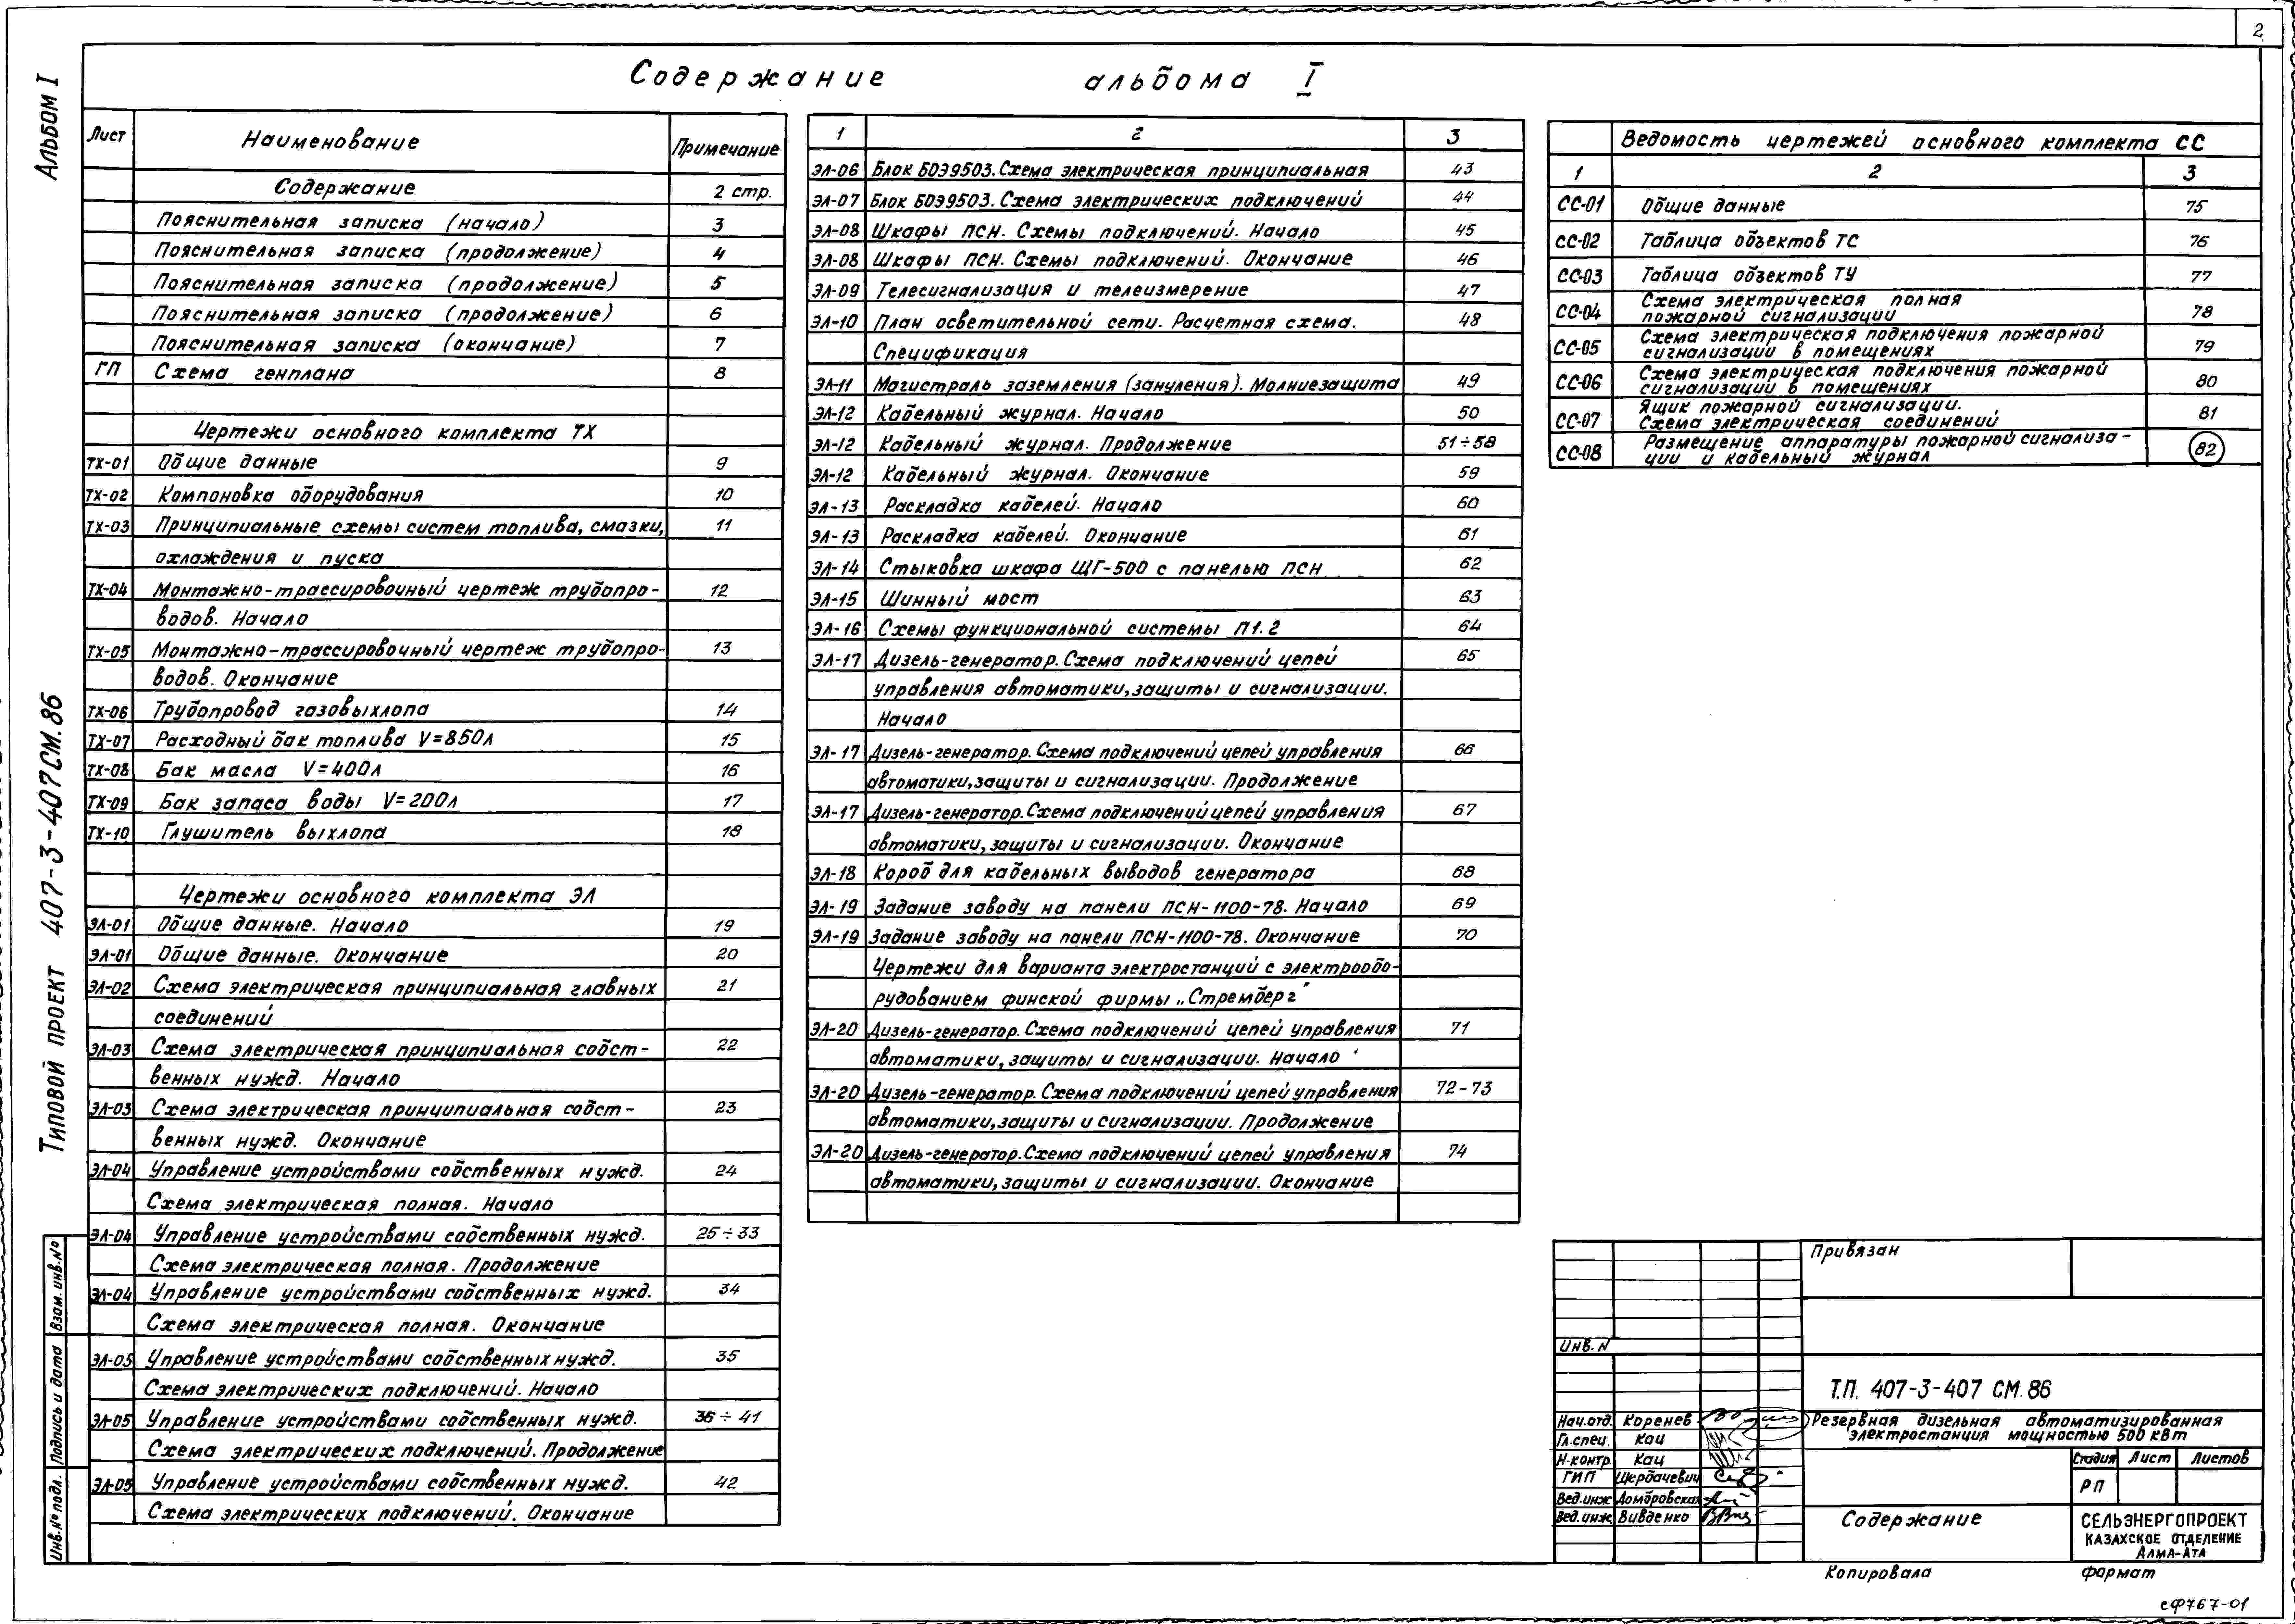 2
Содержание альбома I
Альбом I
Типовой проект 407-3-407СМ.86
Взам. инв.№
Подпись и дата
Инв.№ подл.
Лист Наименование Примечание
Содержание 2 стр.
Пояснительная записка (начало) 3
Пояснительная записка (продолжение) 4
Пояснительная записка (продолжение) 5
Пояснительная записка (продолжение) 6
Пояснительная записка (окончание) 7
ГП Схема генплана 8
Чертежи основного комплекта ТХ
ТХ-01 Общие данные 9
ТХ-02 Компоновка оборудования 10
ТХ-03 Принципиальные схемы систем топлива, смазки, 11
охлаждения и пуска
ТХ-04 Монтажно-трассировочный чертеж трубопро- 12
водов. Начало
ТХ-05 Монтажно-трассировочный чертеж трубопро- 13
водов. Окончание
ТХ-06 Трубопровод газовыхлопа 14
ТХ-07 Расходный бак топлива V=850л 15
ТХ-08 Бак масла V=400л 16
ТХ-09 Бак запаса воды V=200л 17
ТХ-10 Глушитель выхлопа 18
Чертежи основного комплекта ЭЛ
ЭЛ-01 Общие данные. Начало 19
ЭЛ-01 Общие данные. Окончание 20
ЭЛ-02 Схема электрическая принципиальная главных 21
соединений
ЭЛ-03 Схема электрическая принципиальная собст- 22
венных нужд. Начало
ЭЛ-03 Схема электрическая принципиальная собст- 23
венных нужд. Окончание
ЭЛ-04 Управление устройствами собственных нужд. 24
Схема электрическая полная. Начало
ЭЛ-04 Управление устройствами собственных нужд. 25÷33
Схема электрическая полная. Продолжение
ЭЛ-04 Управление устройствами собственных нужд. 34
Схема электрическая полная. Окончание
ЭЛ-05 Управление устройствами собственных нужд. 35
Схема электрических подключений. Начало
ЭЛ-05 Управление устройствами собственных нужд. 36÷41
Схема электрических подключений. Продолжение
ЭЛ-05 Управление устройствами собственных нужд. 42
Схема электрических подключений. Окончание
1 2 3
ЭЛ-06 Блок БОЭ9503. Схема электрическая принципиальная 43
ЭЛ-07 Блок БОЭ9503. Схема электрических подключений 44
ЭЛ-08 Шкафы ПСН. Схемы подключений. Начало 45
ЭЛ-08 Шкафы ПСН. Схемы подключений. Окончание 46
ЭЛ-09 Телесигнализация и телеизмерение 47
ЭЛ-10 План осветительной сети. Расчетная схема. 48
Спецификация
ЭЛ-11 Магистраль заземления (зануления). Молниезащита 49
ЭЛ-12 Кабельный журнал. Начало 50
ЭЛ-12 Кабельный журнал. Продолжение 51÷58
ЭЛ-12 Кабельный журнал. Окончание 59
ЭЛ-13 Раскладка кабелей. Начало 60
ЭЛ-13 Раскладка кабелей. Окончание 61
ЭЛ-14 Стыковка шкафа ЩГ-500 с панелью ПСН 62
ЭЛ-15 Шинный мост 63
ЭЛ-16 Схемы функциональной системы П1.2 64
ЭЛ-17 Дизель-генератор. Схема подключений цепей 65
управления автоматики, защиты и сигнализации.
Начало
ЭЛ-17 Дизель-генератор. Схема подключений цепей управления 66
автоматики, защиты и сигнализации. Продолжение
ЭЛ-17 Дизель-генератор. Схема подключений цепей управления 67
автоматики, защиты и сигнализации. Окончание
ЭЛ-18 Короб для кабельных выводов генератора 68
ЭЛ-19 Задание заводу на панели ПСН-1100-78. Начало 69
ЭЛ-19 Задание заводу на панели ПСН-1100-78. Окончание 70
Чертежи для варианта электростанций с электрообо-
рудованием финской фирмы „Стремберг"
ЭЛ-20 Дизель-генератор. Схема подключений цепей управления 71
автоматики, защиты и сигнализации. Начало
ЭЛ-20 Дизель-генератор. Схема подключений цепей управления 72-73
автоматики, защиты и сигнализации. Продолжение
ЭЛ-20 Дизель-генератор. Схема подключений цепей управления 74
автоматики, защиты и сигнализации. Окончание
Ведомость чертежей основного комплекта СС
1 2 3
СС-01 Общие данные 75
СС-02 Таблица объектов ТС 76
СС-03 Таблица объектов ТУ 77
СС-04 Схема электрическая полная 78
пожарной сигнализации
СС-05 Схема электрическая подключения пожарной 79
сигнализации в помещениях
СС-06 Схема электрическая подключения пожарной 80
сигнализации в помещениях
СС-07 Ящик пожарной сигнализации. 81
Схема электрическая соединений
СС-08 Размещение аппаратуры пожарной сигнализа- 82
ции и кабельный журнал
Привязан
Инв.N
Т.П. 407-3-407 СМ.86
Нач.отд. Коренев
Гл.спец. Кац
Н.контр. Кац
ГИП Щербачевич
Вед.инж Домбровская
Вед.инж. Вивденко
Резервная дизельная автоматизированная
электростанция мощностью 500 кВт
Стадия Лист Листов
РП
Содержание
СЕЛЬЭНЕРГОПРОЕКТ
КАЗАХСКОЕ ОТДЕЛЕНИЕ
АЛМА-АТА
Копировала
формат
сф767-01